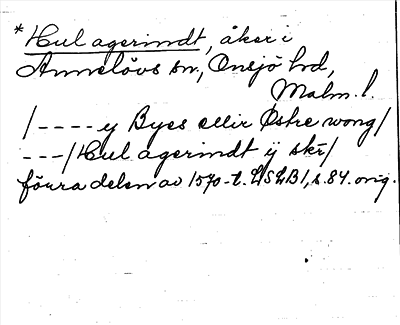 *Hul agerindt, åker i
Annelövs sn, Onsjö hd,
Malm. l.
/----y Byes ellir Östre wong/
---/Hul agerindt ij skr/
förra delen av 1570-t. LSLB1, s. 84. orig.